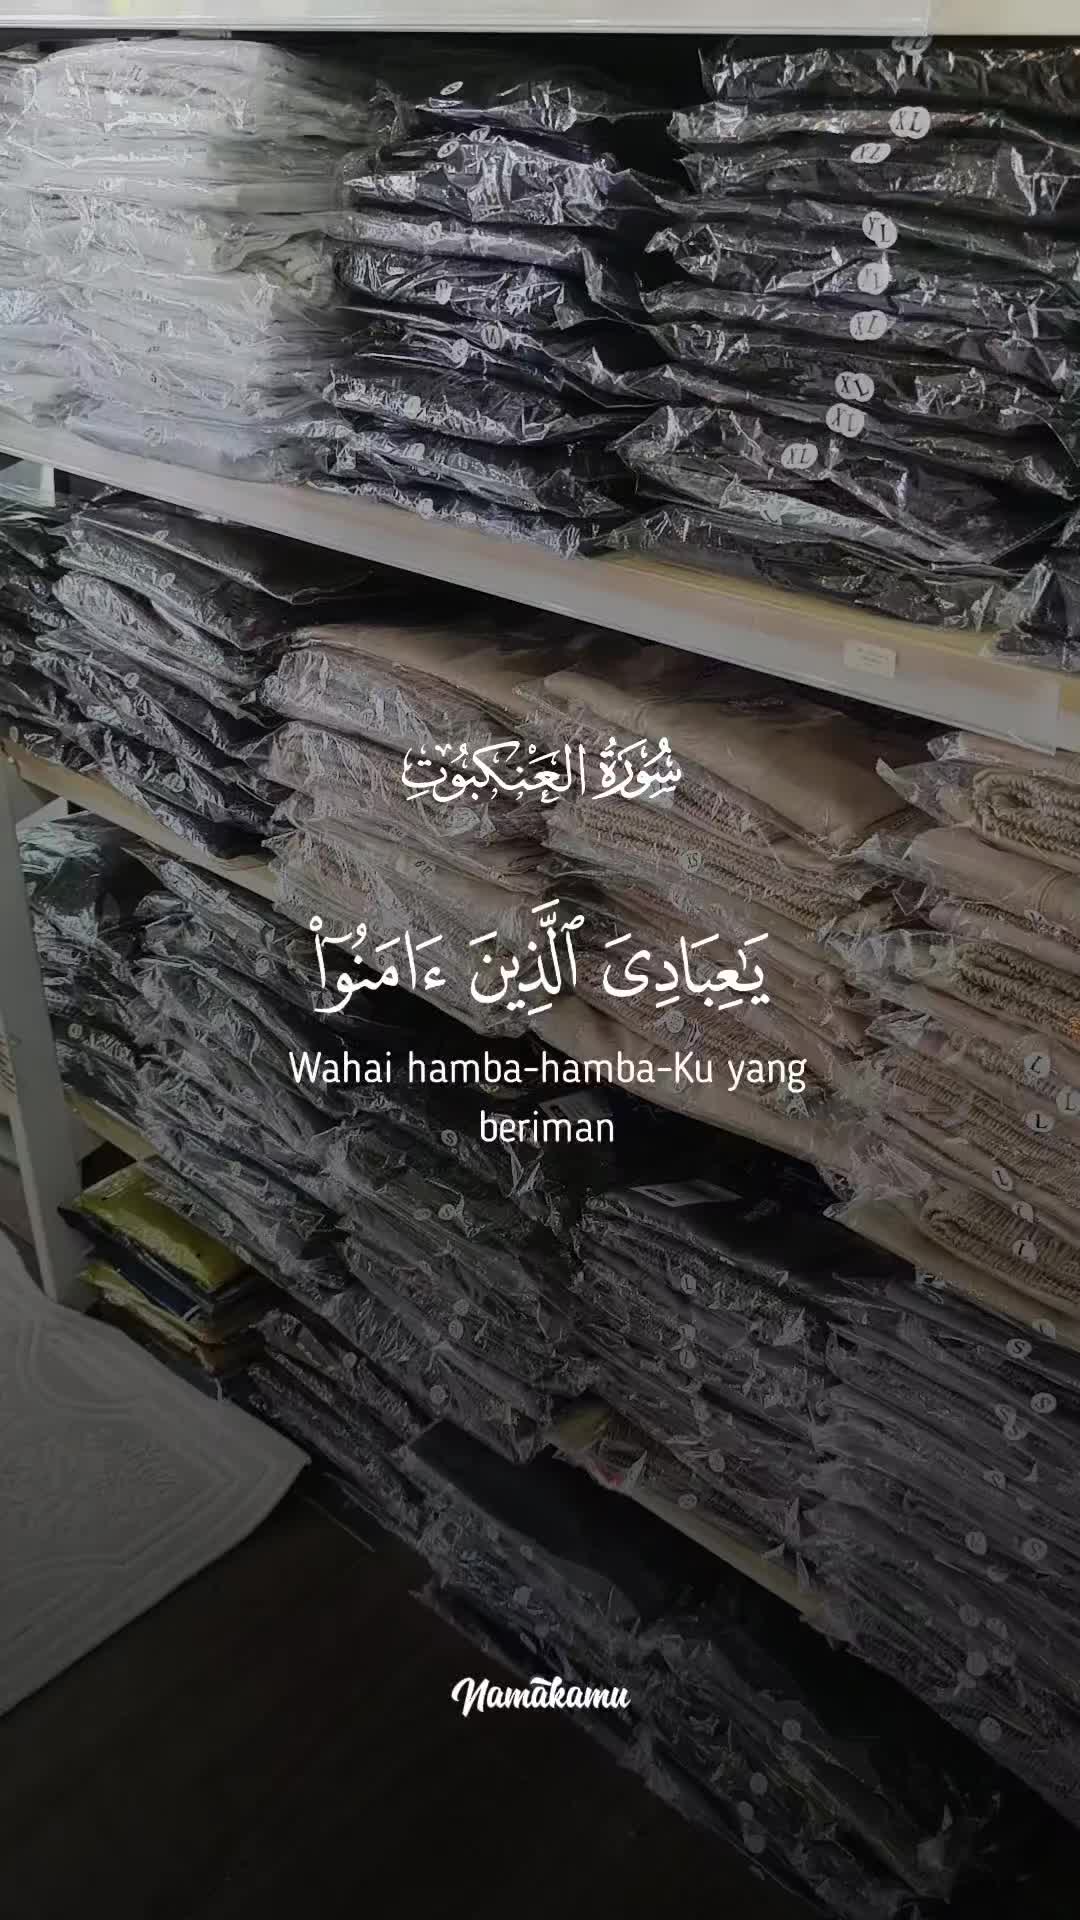 XL
XL
XL
XL
XL
XL
XL
XL
سُورَةُ العَنْكَبُوتِ
يَـٰعِبَادِىَ ٱلَّذِينَ ءَامَنُوٓا۟
Wahai hamba-hamba-Ku yang
beriman
L
L
L
S
S
Namakamu